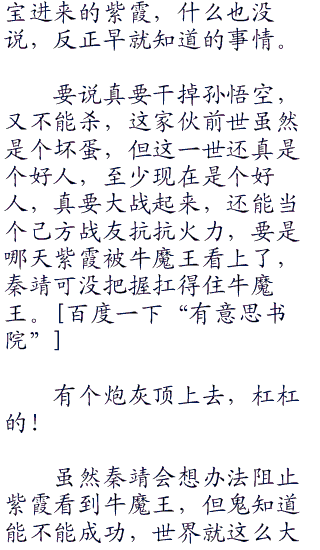 宝进来的紫霞，什么也没
说，反正早就知道的事情。
要说真要干掉孙悟空，
又不能杀，这家伙前世虽然
是个坏蛋，但这一世还真是
个好人，至少现在是个好
人，真要大战起来，还能当
个己方战友抗抗火力，要是
哪天紫霞被牛魔王看上了，
秦靖可没把握扛得住牛魔
王。[百度一下“有意思书
院”]
有个炮灰顶上去，杠杠
的！
虽然秦靖会想办法阻止
紫霞看到牛魔王，但鬼知道
能不能成功，世界就这么大